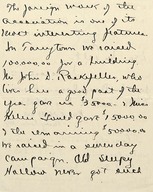 The foreign work of the
association is one of its
most interesting features.
In Tarrytown we raised
100,000.00 for a building
Mr. John D. Rockefeller, who
lives here a good part of the
year gave us $ 5000. Miss
Helen Gould gave $ 5000.00
& the remaining $ 50000.00
we raised in a
campaign. Old Sleepy
Hollow never got such